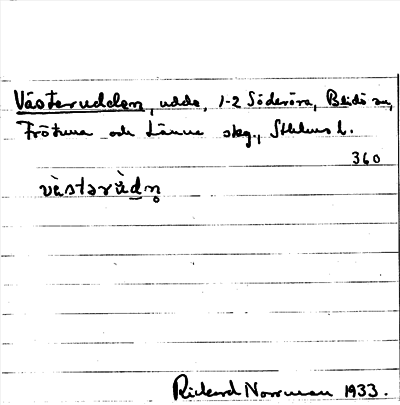 Västerudden, udde, 1-2 Söderöra, Blidö sn,
Frötuna och Länna skg., Sthlms l.
360
vàstərùdn̥
Rickard Norrman 1933.